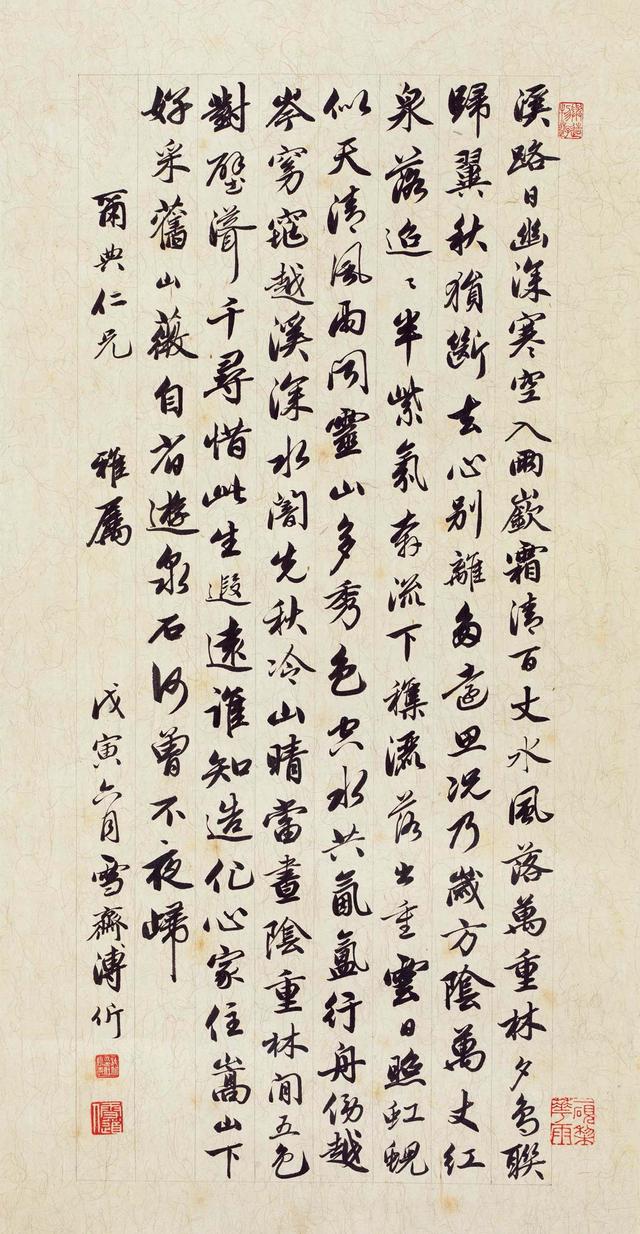 溪路日幽深寒空入兩嶔霜清百丈水風落萬重林夕鳥聯
歸翼秋猿斷去心別離多遠思況乃歲方陰萬丈紅
泉落迢〻半紫氣奔流下雜灑落出重雲日照虹蜺
似天清風雨聞靈山多秀色空水共氤氳行舟傍越
岑窈窕越溪深水闇先秋冷山晴當晝陰重林間五色
對壁聳千尋惜此生遐遠誰知造化心家住嵩山下
好采舊山薇自省遊泉石何曾不夜歸
爾典仁兄 雅屬 戊寅六月雪齋溥伒